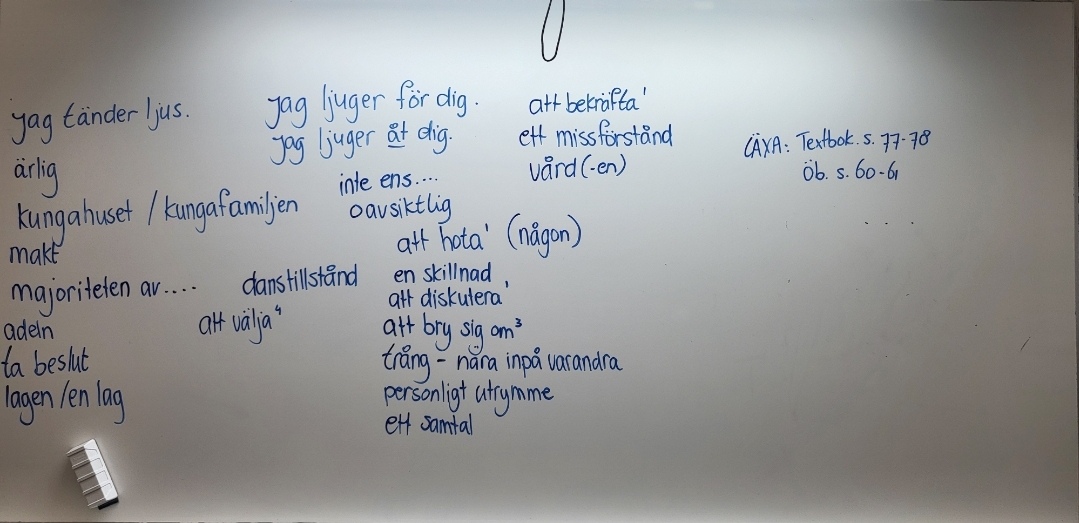 jag tänder ljus.
ärlig
kungahuset / kungafamiljen
makt
majoriteten av....
adeln
ta beslut
lagen /en lag
danstillstånd
att välja⁴
jag ljuger för dig.
jag ljuger åt dig.
inte ens....
oavsiktlig
att hota¹ (någon)
en skillnad
att diskutera¹
att bry sig om³
trång - nära inpå varandra
personligt utrymme
ett samtal
att bekräfta¹
ett missförstånd
vård (-en)
LÄXA: Textbok. s. 77-78
Öb. s. 60-61